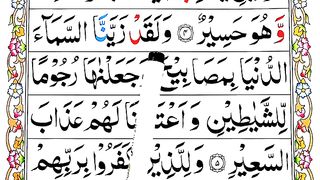 وَّهُوَ حَسِيْرٌ ﴿۴﴾ وَلَقَدْ زَيَّنَّا السَّمَآءَ
الدُّنْيَا بِمَصَابِيْحَ وَجَعَلْنٰهَا رُجُوْمًا
لِّلشَّيٰطِيْنِ وَاَعْتَدْنَا لَهُمْ عَذَابَ
السَّعِيْرِ ﴿۵﴾ وَلِلَّذِيْنَ كَفَرُوْا بِرَبِّهِمْ